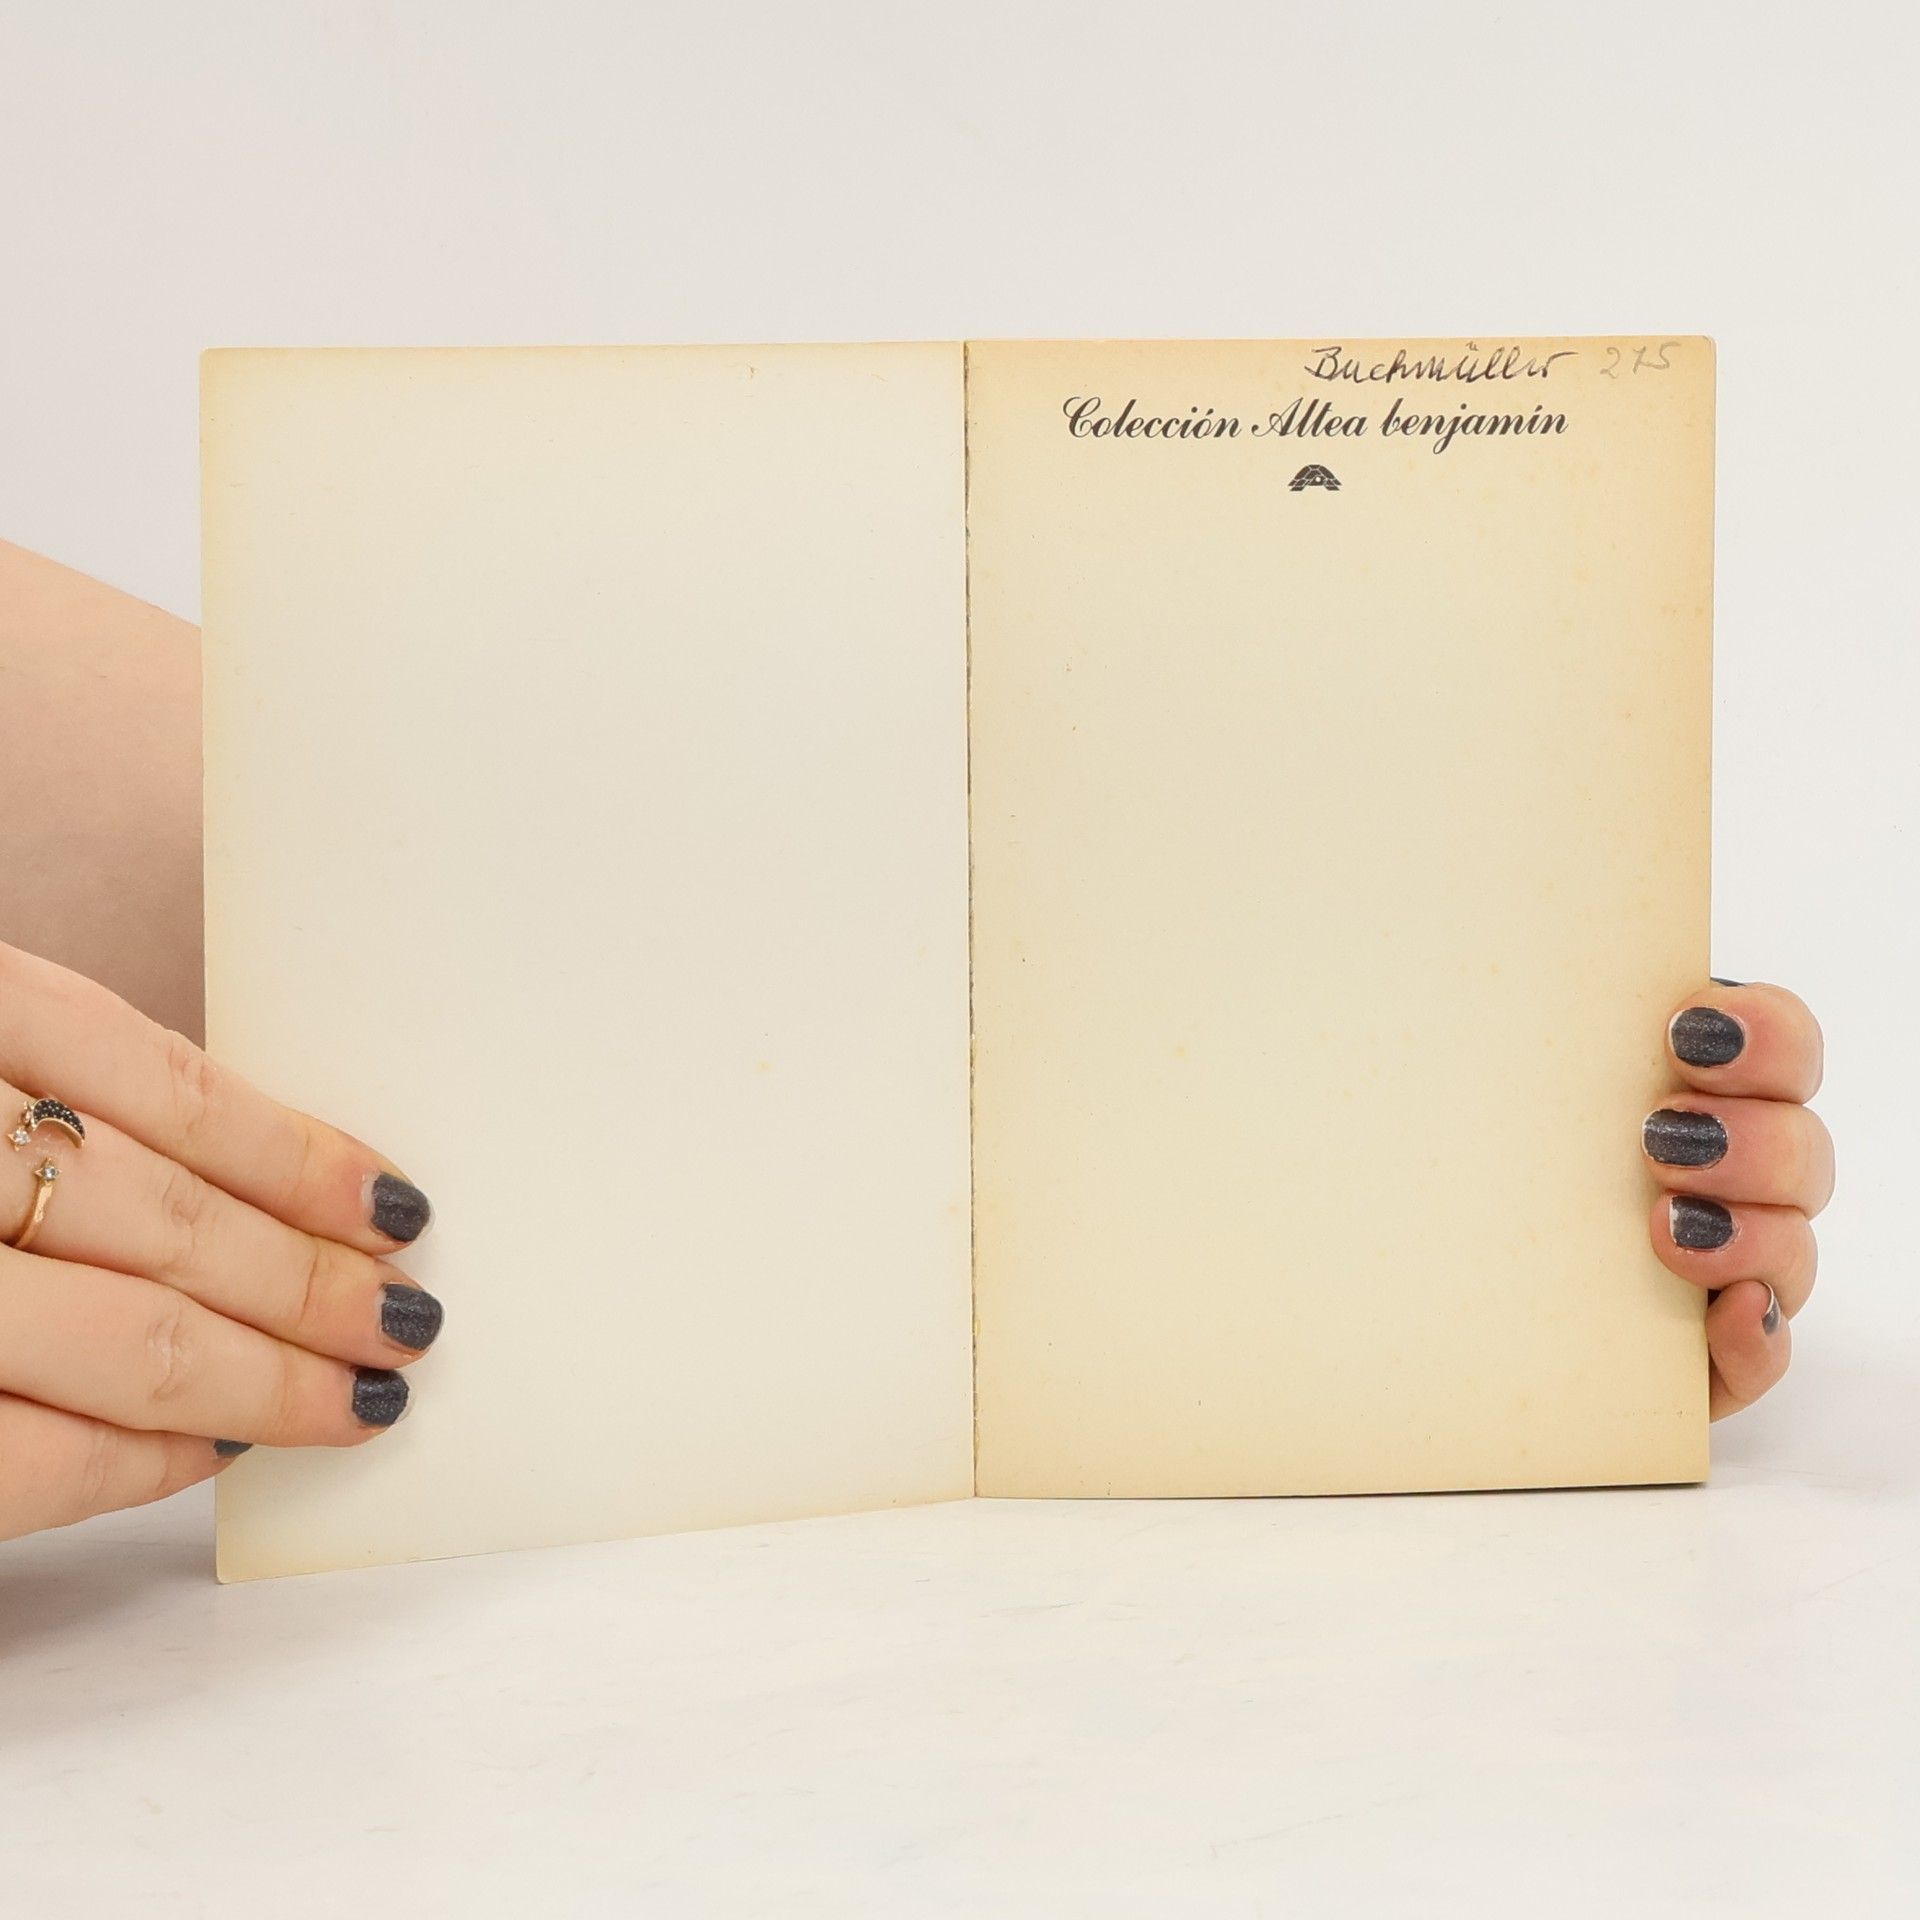 Buchmüller 275
Colección Altea benjamín